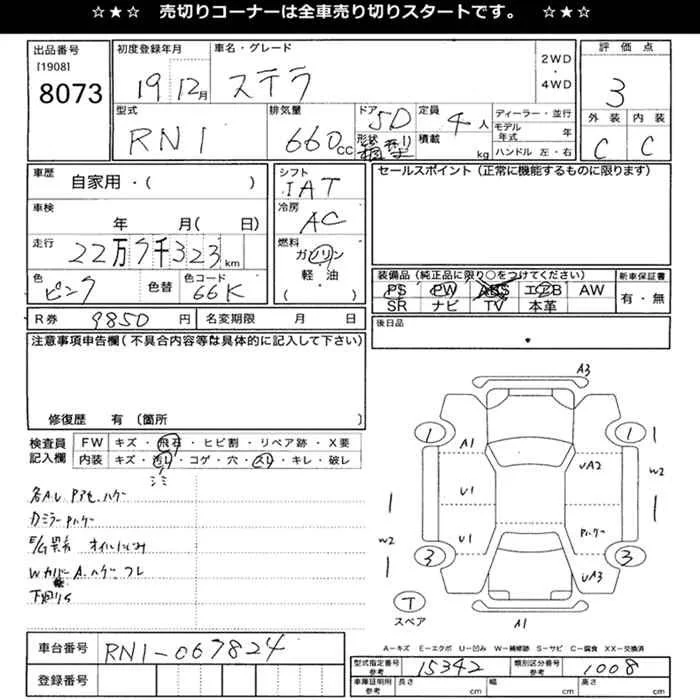 ☆★☆ 売切りコーナーは全車売り切りスタートです。 ☆★☆
出品番号 [1908] 8073
初度登録年月 19年 12月
車名・グレード ステラ
2WD・4WD
評価点 3
外装 C 内装 C
型式 RN1
排気量 660CC
ドア 5D
形状
定員 4人
積載 kg
ディーラー・並行
モデル年式 年
ハンドル 左・右
車歴 自家用・( )
車検 年 月( 日)
走行 22万7千323km
色 ピンク 色替 色コード 66K
シフト IAT
冷房 AC
燃料 ガソリン 軽・油 ( )
セールスポイント(正常に機能するものに限ります)
装備品(純正品に限り○をつけてください) 新車保証書
PS PW ABS エアB AW 有・無
SR ナビ TV 本革
R券 9850円 名変期限 月 日
後日品
注意事項申告欄(不具合内容等は具体的に記入して下さい)
修復歴 有 〔箇所 〕
検査員記入欄
FW キズ・飛石・ヒビ割・リペア跡・X要
内装 キズ・汚れ・コゲ・穴・スレ・キレ・破レ
シミ
各A.U Pアセ.ハゲ
DミラーPハゲ
E/G異音 オイルにじみ
Wカバー A.ハゲ フレ
下廻りS
A3
1 1
A1 UA2 W2
U1
W2 U1 Pハゲ
3 3
UA3
T スペア
A1
A=キズ E=エクボ U=凹み W=補修跡 S=サビ C=腐食 XX=交換済
車台番号 RN1-067824
登録番号
型式指定番号 参考 15342 類別区分番号 参考 1008
車庫証明用 参考 長さ cm 幅 cm 高さ cm